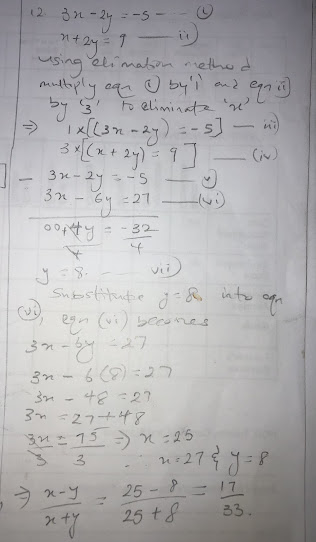 12 3x - 2y = -5 -- (i)
x + 2y = 9 — ii)
Using elimation method
multiply eqn (i) by '1' and eqn ii]
by '3' to eliminate 'x'
⇒ 1x[(3x - 2y) = -5] — iii)
3x[(x + 2y) = 9] — (iv)
- 3x - 2y = -5 — (v)
3x - 6y = 27 — (vi)
00, 4y = -32
4 4
y = 8. vii)
Substitute y = 8 into eqn
(vi), eqn (vi) becomes
3x - 6y = 27
3x - 6(8) = 27
3x - 48 = 27
3x = 27 + 48
3x = 75 ⇒ x = 25
3 3
∴ x = 27 & y = 8
⇒ x-y = 25 - 8 = 17
x+y 25 + 8 33.